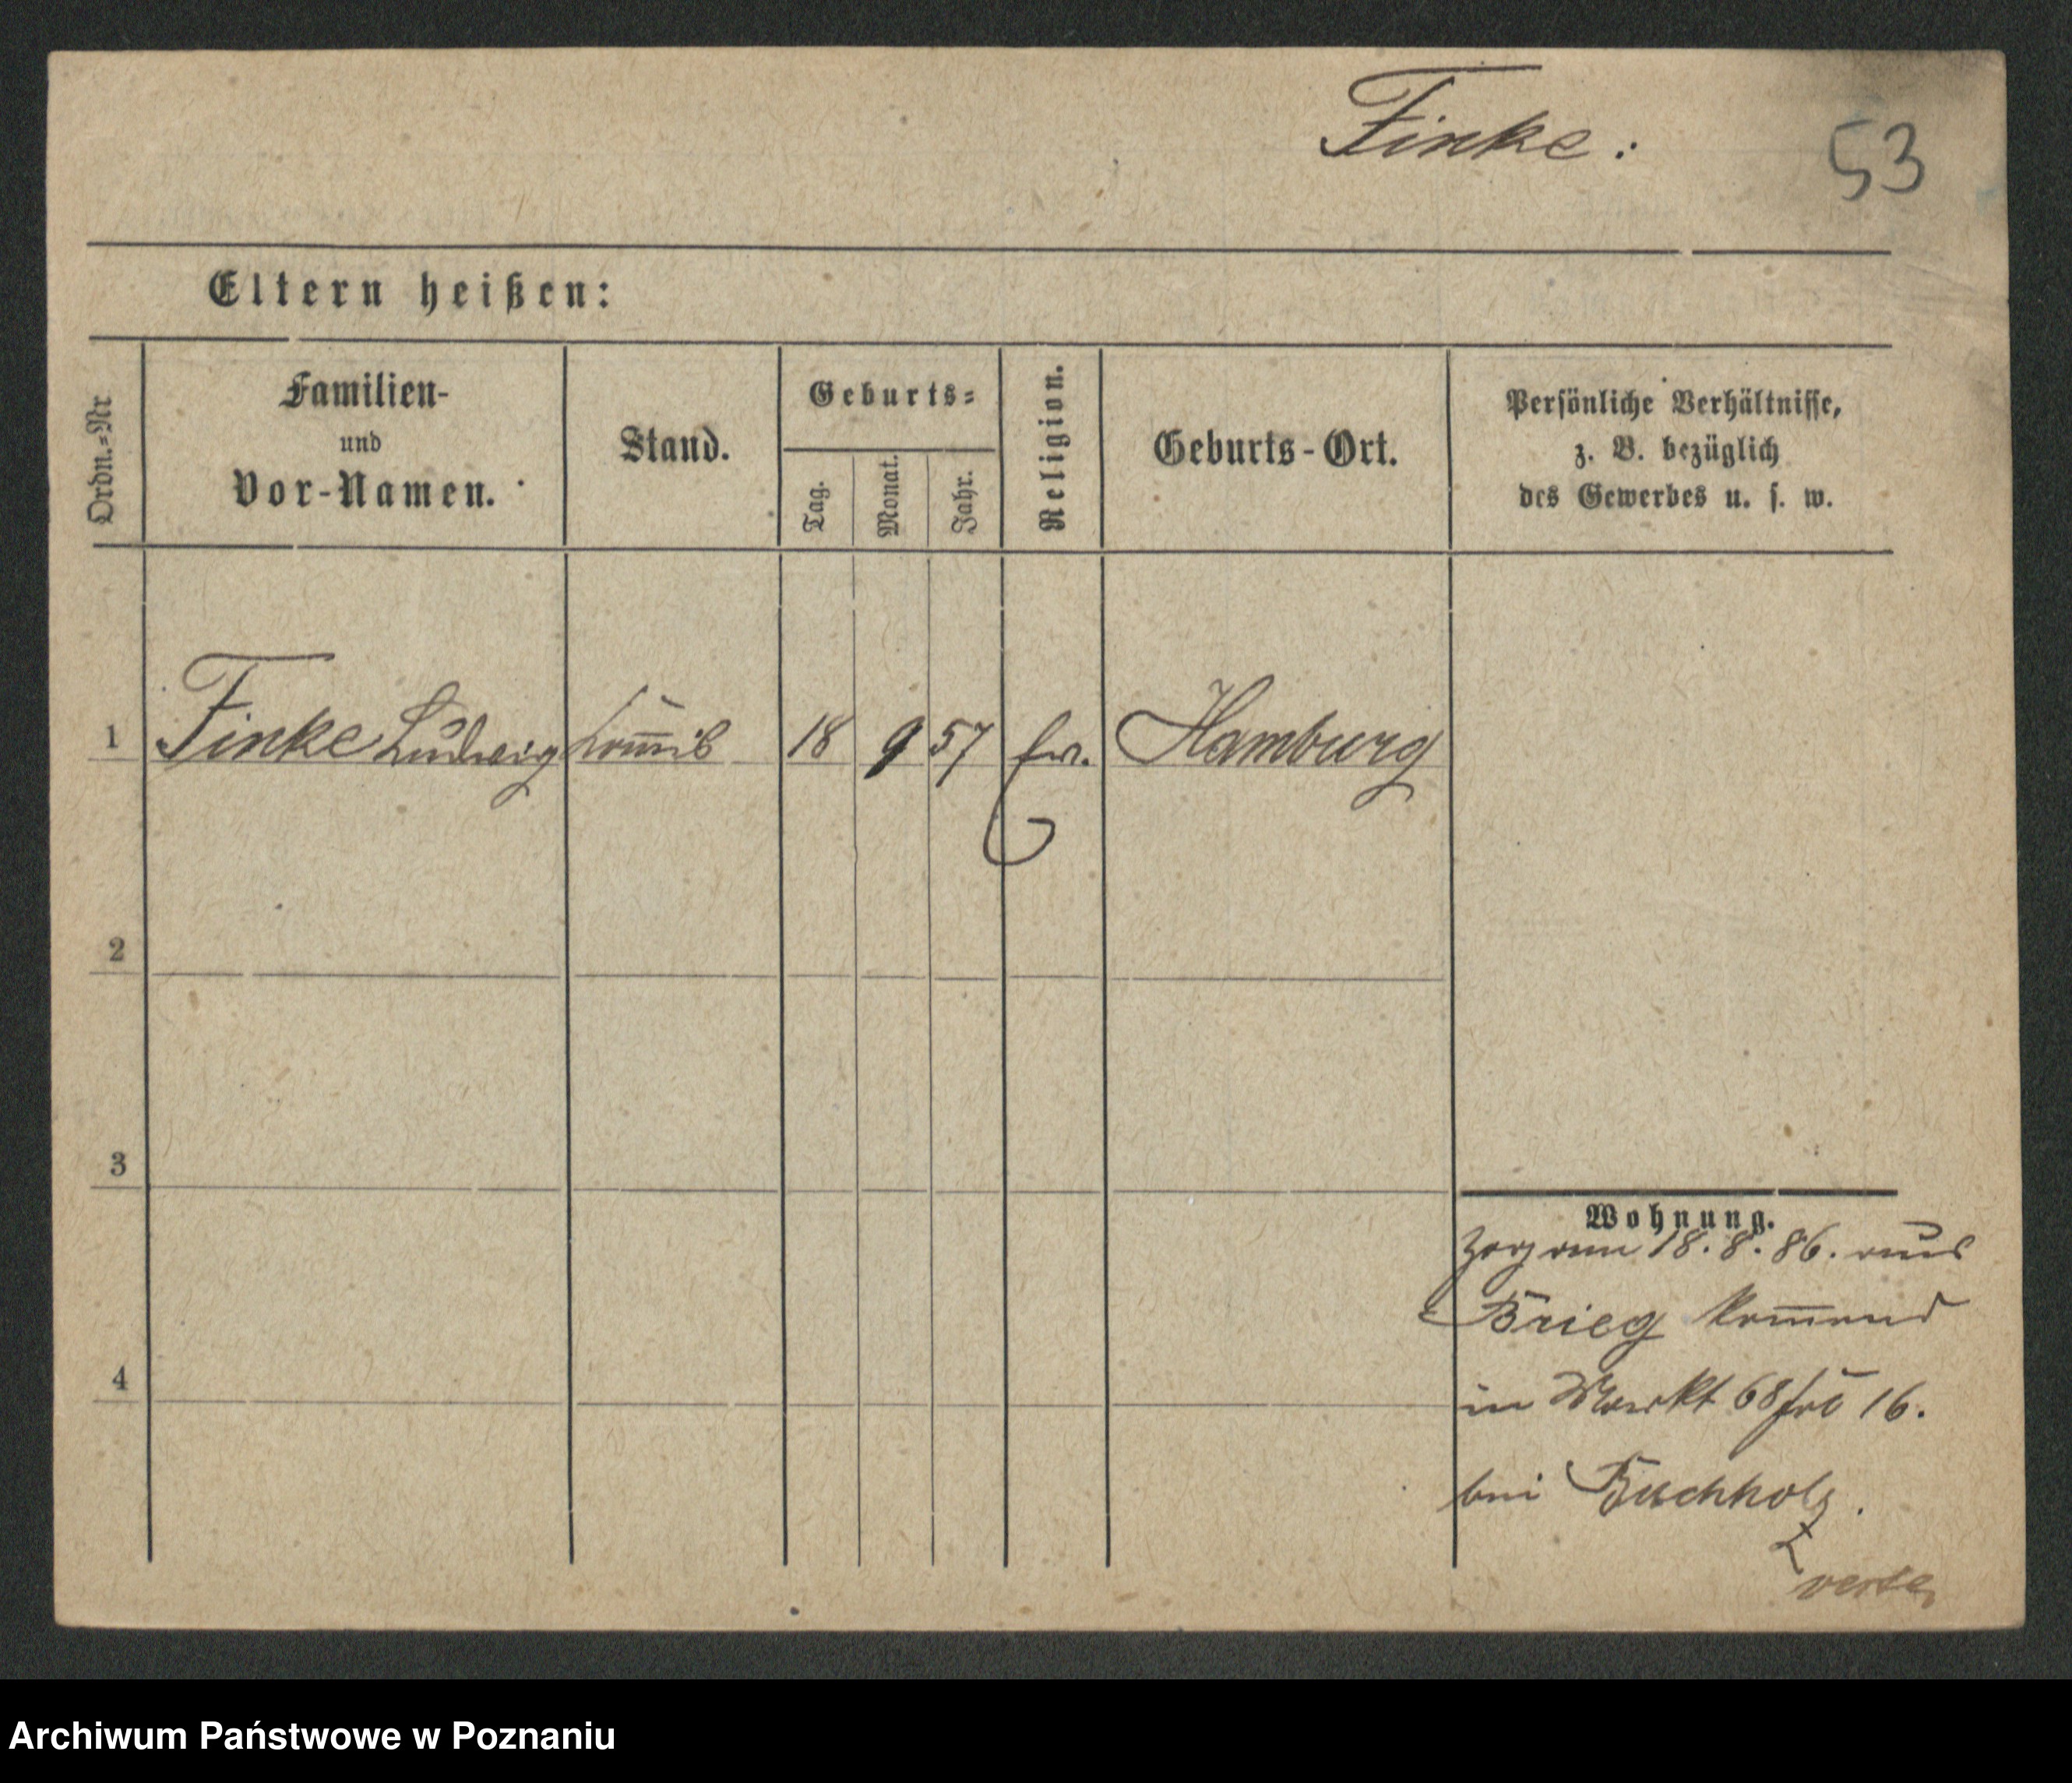 Finke: 53
Eltern heißen:
Ordn.-Nr
Familien-
und
Vor-Namen.
Stand.
Geburts-
Tag.
Monat.
Jahr.
Religion.
Geburts-Ort.
Persönliche Verhältnisse,
z. B. bezüglich
des Gewerbes u. s. w.
1 Finke Ludwig Com̅is 18 9 57 ev. Hamburg
2
3
4
Wohnung.
Zog am 18. 8. 86. aus
Brieg kom̅end
in Markt 68 16.
bei Buchholz.
Archiwum Państwowe w Poznaniu